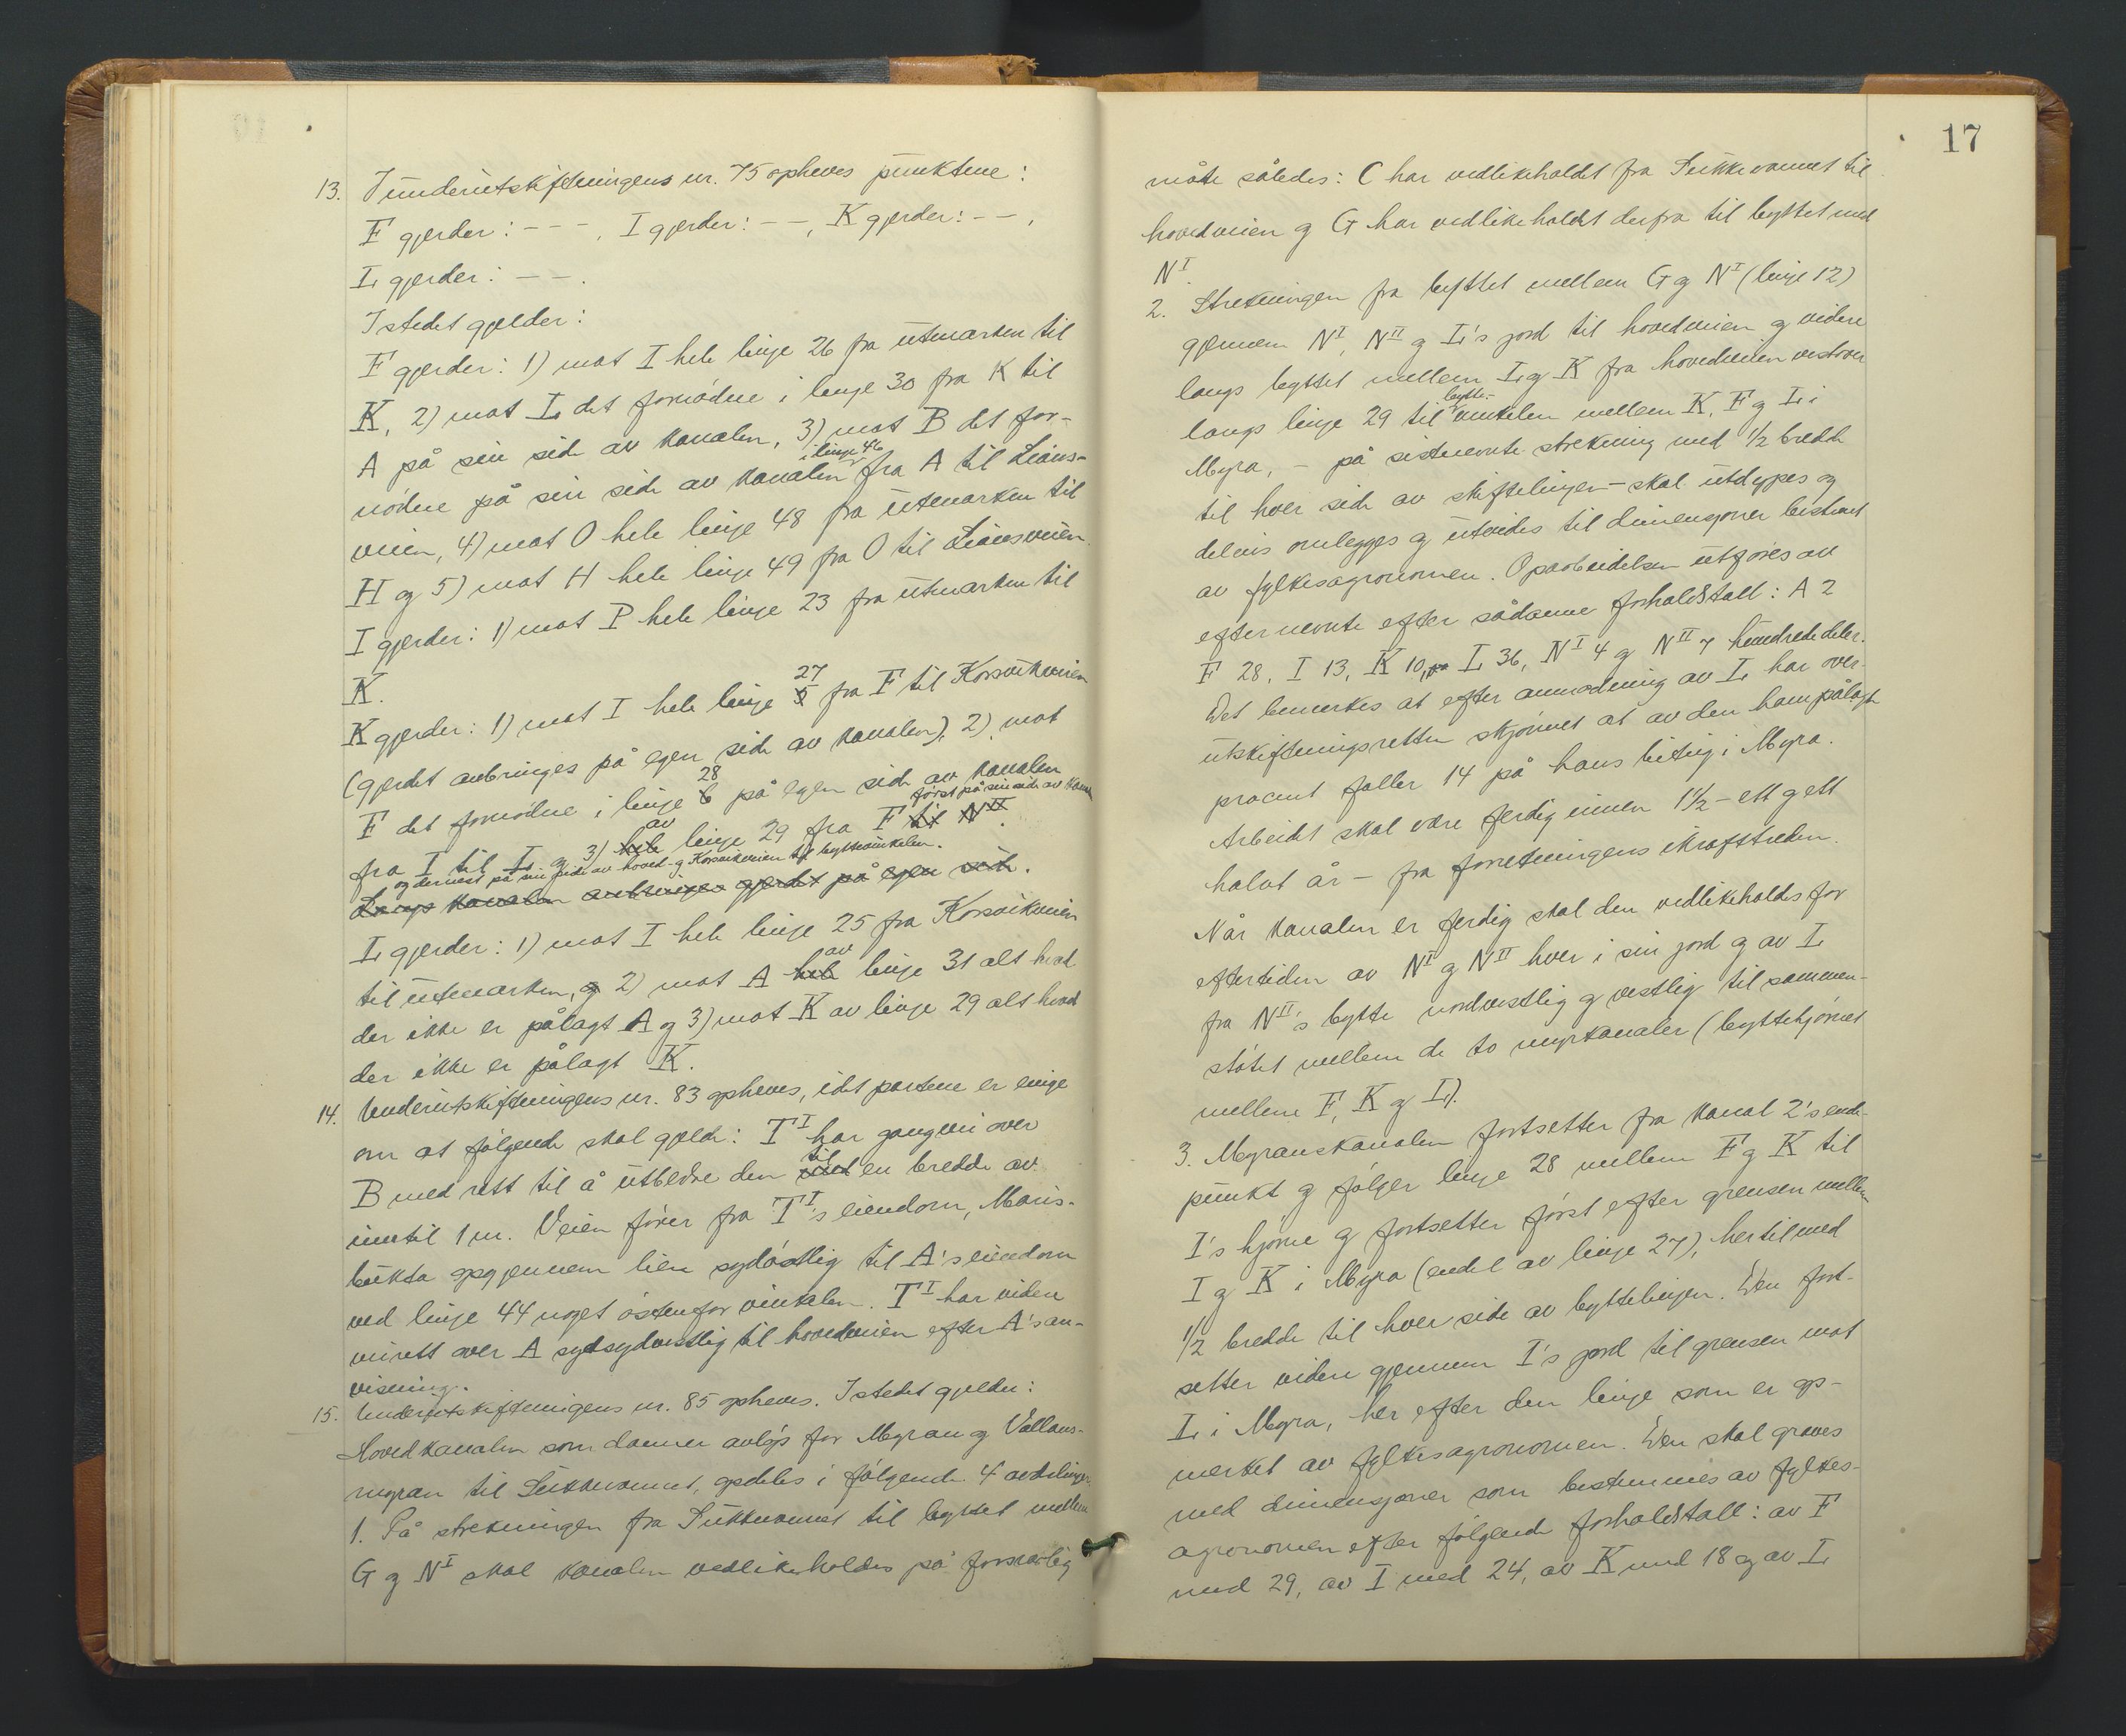 13. I underutskiftningens nr. 75 opheves punktene:
F gjerder: - - - , I gjerder: - - , K gjerder: - - ,
L gjerder: - - .
I stedet gjelder:
F gjerder: 1) mot I hele linje 26 fra utmarken til
K, 2) mot L det fornødne i linje 30 fra K til
A på sin side av kanalen, 3) mot B det for-
i linje 46
nødne på sin side av kanalen fra A til Lians-
veien, 4) mot O hele linje 48 fra utmarken til
H og 5) mot H hele linje 49 fra O til Liansveien.
I gjerder: 1) mot P hele linje 23 fra utmarken til
K.
27
K gjerder: 1) mot I hele linje 5 fra F til Korsvikveien
(gjerdet anbringes på egen side av kanalen), 2) mot
28
F det fornødne i linje 6 på egen side av kanalen
av først på sin side av kanal
fra I til L og 3) hele linje 29 fra F til NII.
og dernest på sin side av hoved- og Korsvikveien til byttevinkelen.
Langs kanalen anbringes gjerdet på egen side.
L gjerder: 1) mot I hele linje 25 fra Korsvikveien
av
til utmarken, og 2) mot A hele linje 31 alt hvad
der ikke er pålagt A og 3) mot K av linje 29 alt hvad
der ikke er pålagt K.
14. Underutskiftningens nr. 83 opheves, idet partene er enige
om at følgende skal gjelde: TI har gangvei over
til
B med rett til å utbedre den med en bredde av
inntil 1 m. Veien fører fra TI's eiendom, Maris-
bukta opgjennem lien sydøstlig til A's eiendom
ved linje 44 noget østenfor vinkelen. TI har videre
veirett over A sydsydvestlig til hovedveien efter A's an-
visning.
15. Underutskiftningens nr. 85 opheves. I stedet gjelder:
Hovedkanalen som danner avløp for Myran og Vallans-
myran til Sukkevannet, opdeles i følgende 4 avdelinger.
1. På strekningen fra Sukkevannet til byttet mellem
G og NI skal kanalen vedlikeholdes på forsvarlig
17
måte således: C har vedlikeholdet fra Sukkevannet til
hovedveien og G har vedlikeholdet derfra til byttet med
NI.
2. Strekningen fra byttet mellem G og NI (linje 12)
gjennem NI, NII og L's jord til hovedveien og videre
langs byttet mellem L og K fra hovedveien vestover
bytte-
langs linje 29 til vinkelen mellem K, F og L i
Myra, - på sistnevnte strekning med 1/2 bredde
til hver side av skiftelinjen - skal utdypes og
delvis omlegges og utvides til dimensjoner bestemt
av fylkesagronomen. Oparbeidelsen utføres av
efternevnte efter sådanne forholdstall: A 2
F 28, I 13, K 10, L 36, NI 4 og NII 7 hundrededeler.
Det bemerkes at efter anmodning av L har over-
utskiftningsretten skjønnet at av den ham pålagte
procent faller 14 på hans beting i Myra.
Arbeidet skal være ferdig innen 1 1/2 - ett og ett
halvt år - fra forretningens ikrafttreden.
Når kanalen er ferdig skal den vedlikeholdes for
eftertiden av NI og NII hver i sin jord og av L
fra NII's bytte nordvestlig og vestlig til sammen-
støtet mellem de to myrkanaler (byttehjørnet
mellem F, K og L).
3. Myranskanalen fortsetter fra kanal 2's ende-
punkt og følger linje 28 mellem F og K til
I's hjørne og fortsetter først efter grensen mellem
I og K i Myra (endel av linje 27), hertil med
1/2 bredde til hver side av byttelinjen. Den fort-
setter videre gjennem I's jord til grensen mot
L i Myra, her efter den linje som er op-
merket av fylkesagronomen. Den skal graves
med dimensjoner som bestemmes av fylkes-
agronomen efter følgende forholdstall: av F
med 29, av I med 24, av K med 18 og av L